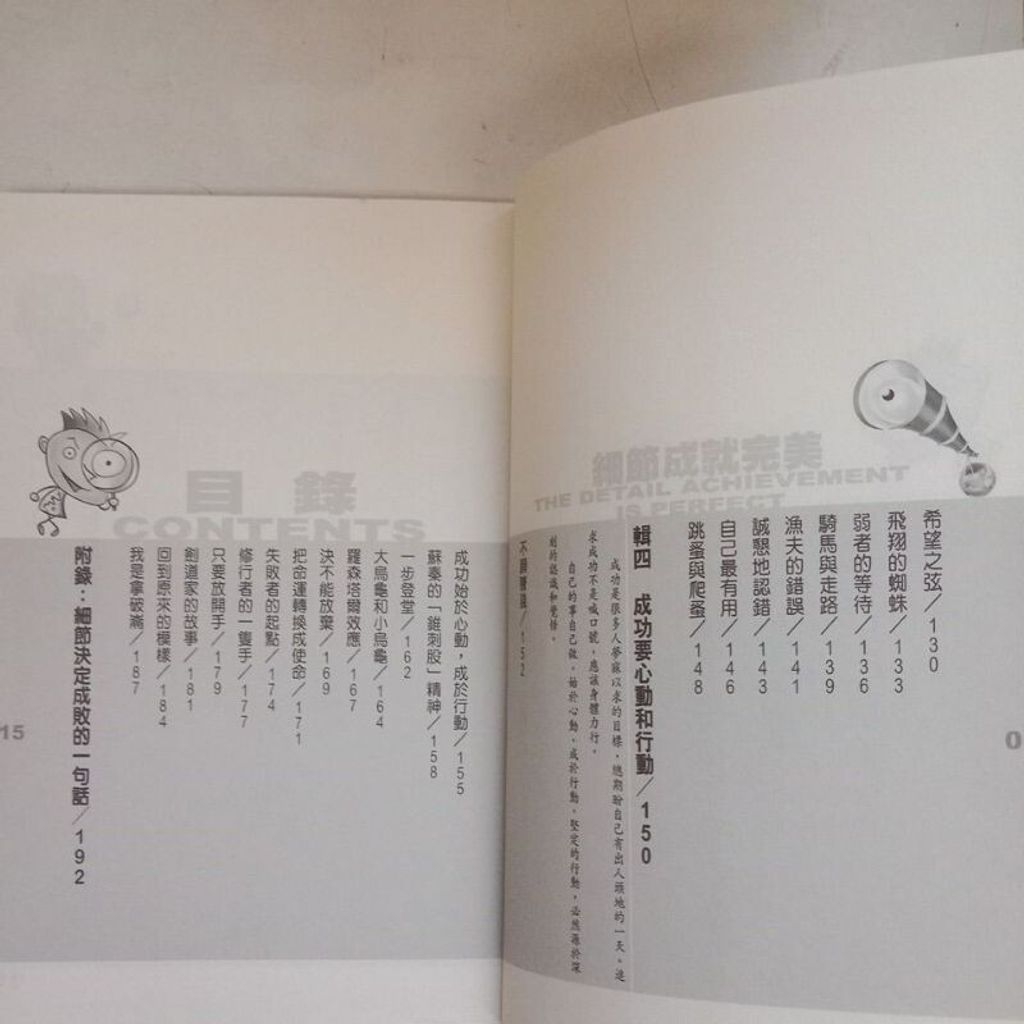 細節成就完美
THE DETAIL ACHIEVEMENT
IS PERFECT
希望之弦／130
飛翔的蜘蛛／133
弱者的等待／136
騎馬與走路／139
漁夫的錯誤／141
誠懇地認錯／143
自己最有用／146
跳蚤與爬蚤／148
輯四　成功要心動和行動／150
成功是很多人夢寐以求的目標，總期盼自己有出人頭地的一天。追
求成功不是喊口號，應該身體力行。
自己的事自己做，始於心動，成於行動。堅定的行動，必然源於深
刻的認識和覺悟。
／152
0
目錄
CONTENTS
成功始於心動，成於行動／155
蘇秦的「錐刺股」精神／158
一步登堂／162
大烏龜和小烏龜／164
羅森塔爾效應／167
決不能放棄／169
把命運轉換成使命／171
失敗者的起點／174
修行者的一隻手／177
只要放開手／179
劍道家的故事／181
回到原來的模樣／184
我是拿破崙／187
附錄：細節決定成敗的一句話／192
15